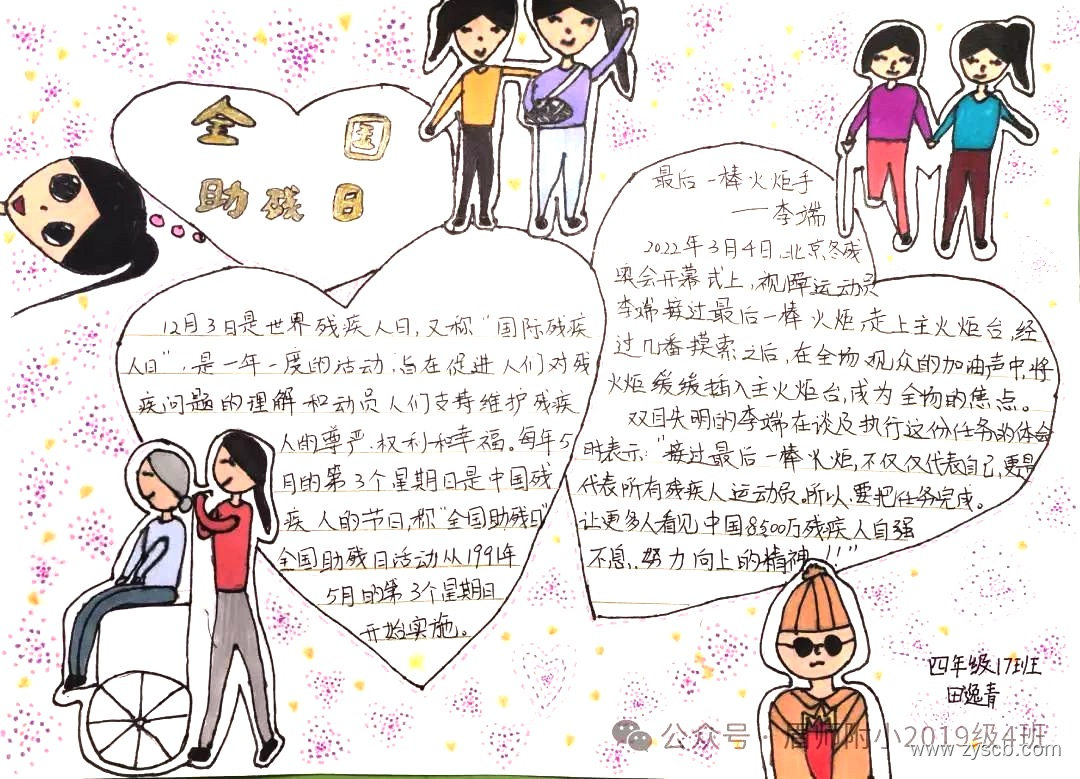 全国
助残日
12月3日是世界残疾人日,又称"国际残疾
人日",是一年一度的活动,旨在促进人们对残
疾问题的理解和动员人们支持维护残疾
人的尊严、权利和幸福。每年5
月的第3个星期日是中国残
疾人的节日,称"全国助残日"
全国助残日活动从1991年
5月的第3个星期日
开始实施。
最后一棒火炬手
——李端
2022年3月4日,北京冬残
奥会开幕式上,视障运动员
李端接过最后一棒火炬,走上主火炬台,经
过几番摸索之后,在全场观众的加油声中,将
火炬缓缓插入主火炬台,成为全场的焦点。
双目失明的李端在谈及执行这份任务的体会
时表示:"接过最后一棒火炬,不仅仅代表自己,更是
代表所有残疾人运动员。所以,要把任务完成。
让更多人看见中国8500万残疾人自强
不息,努力向上的精神!!"
四年级17班
田逸青
公众号·眉师附小2019级4班
www.zyscb.com